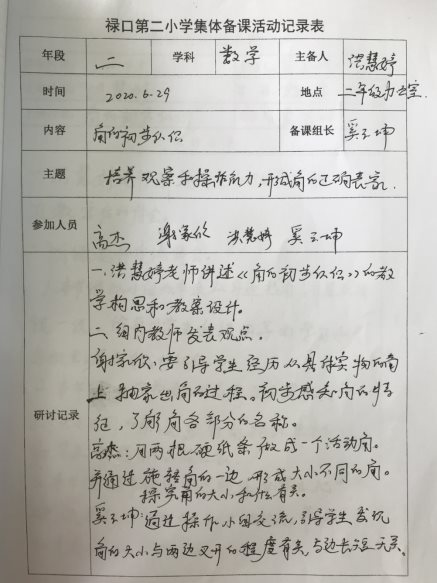 禄口第二小学集体备课活动记录表
年段 二 学科 数学 主备人 洪慧婷
时间 2020.6.29 地点 二年级办公室
内容 角的初步认识 备课组长 奚玉坤
主题 培养观察和操作能力，形成角的正确表象.
参加人员 高杰 谢家欣 洪慧婷 奚玉坤
研讨记录
一.洪慧婷老师讲述《角的初步认识》的教
学构思和教案设计。
二.组内教师发表观点.
谢家欣：要引导学生经历从具体实物的面
上抽象出角的过程。初步感知角的特
征，了解角各部分的名称。
高杰：用两根硬纸条做成一个活动角。
并通过旋转角的一边，形成大小不同的角。
探究角的大小和什么有关。
奚玉坤：通过操作、小组交流，引导学生发现
角的大小与两边叉开的程度有关，与边长短无关。